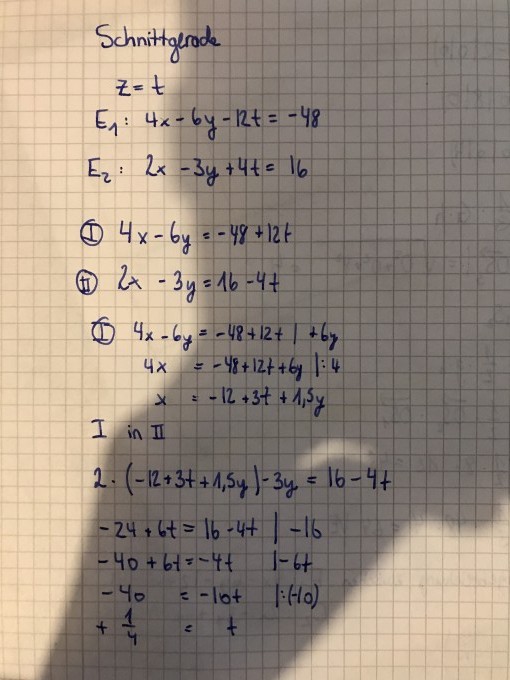 Schnittgerade
z = t
E₁: 4x - 6y - 12t = -48
E₂: 2x - 3y + 4t = 16
Ⓘ 4x - 6y = -48 + 12t
Ⓘ Ⓘ 2x - 3y = 16 - 4t
Ⓘ 4x - 6y = -48 + 12t | + 6y
4x = -48 + 12t + 6y | : 4
x = -12 + 3t + 1,5y
I in II
2 · (-12 + 3t + 1,5y) - 3y = 16 - 4t
-24 + 6t = 16 - 4t | -16
-40 + 6t = -4t | -6t
-40 = -10t | : (-10)
+ 1/4 = t